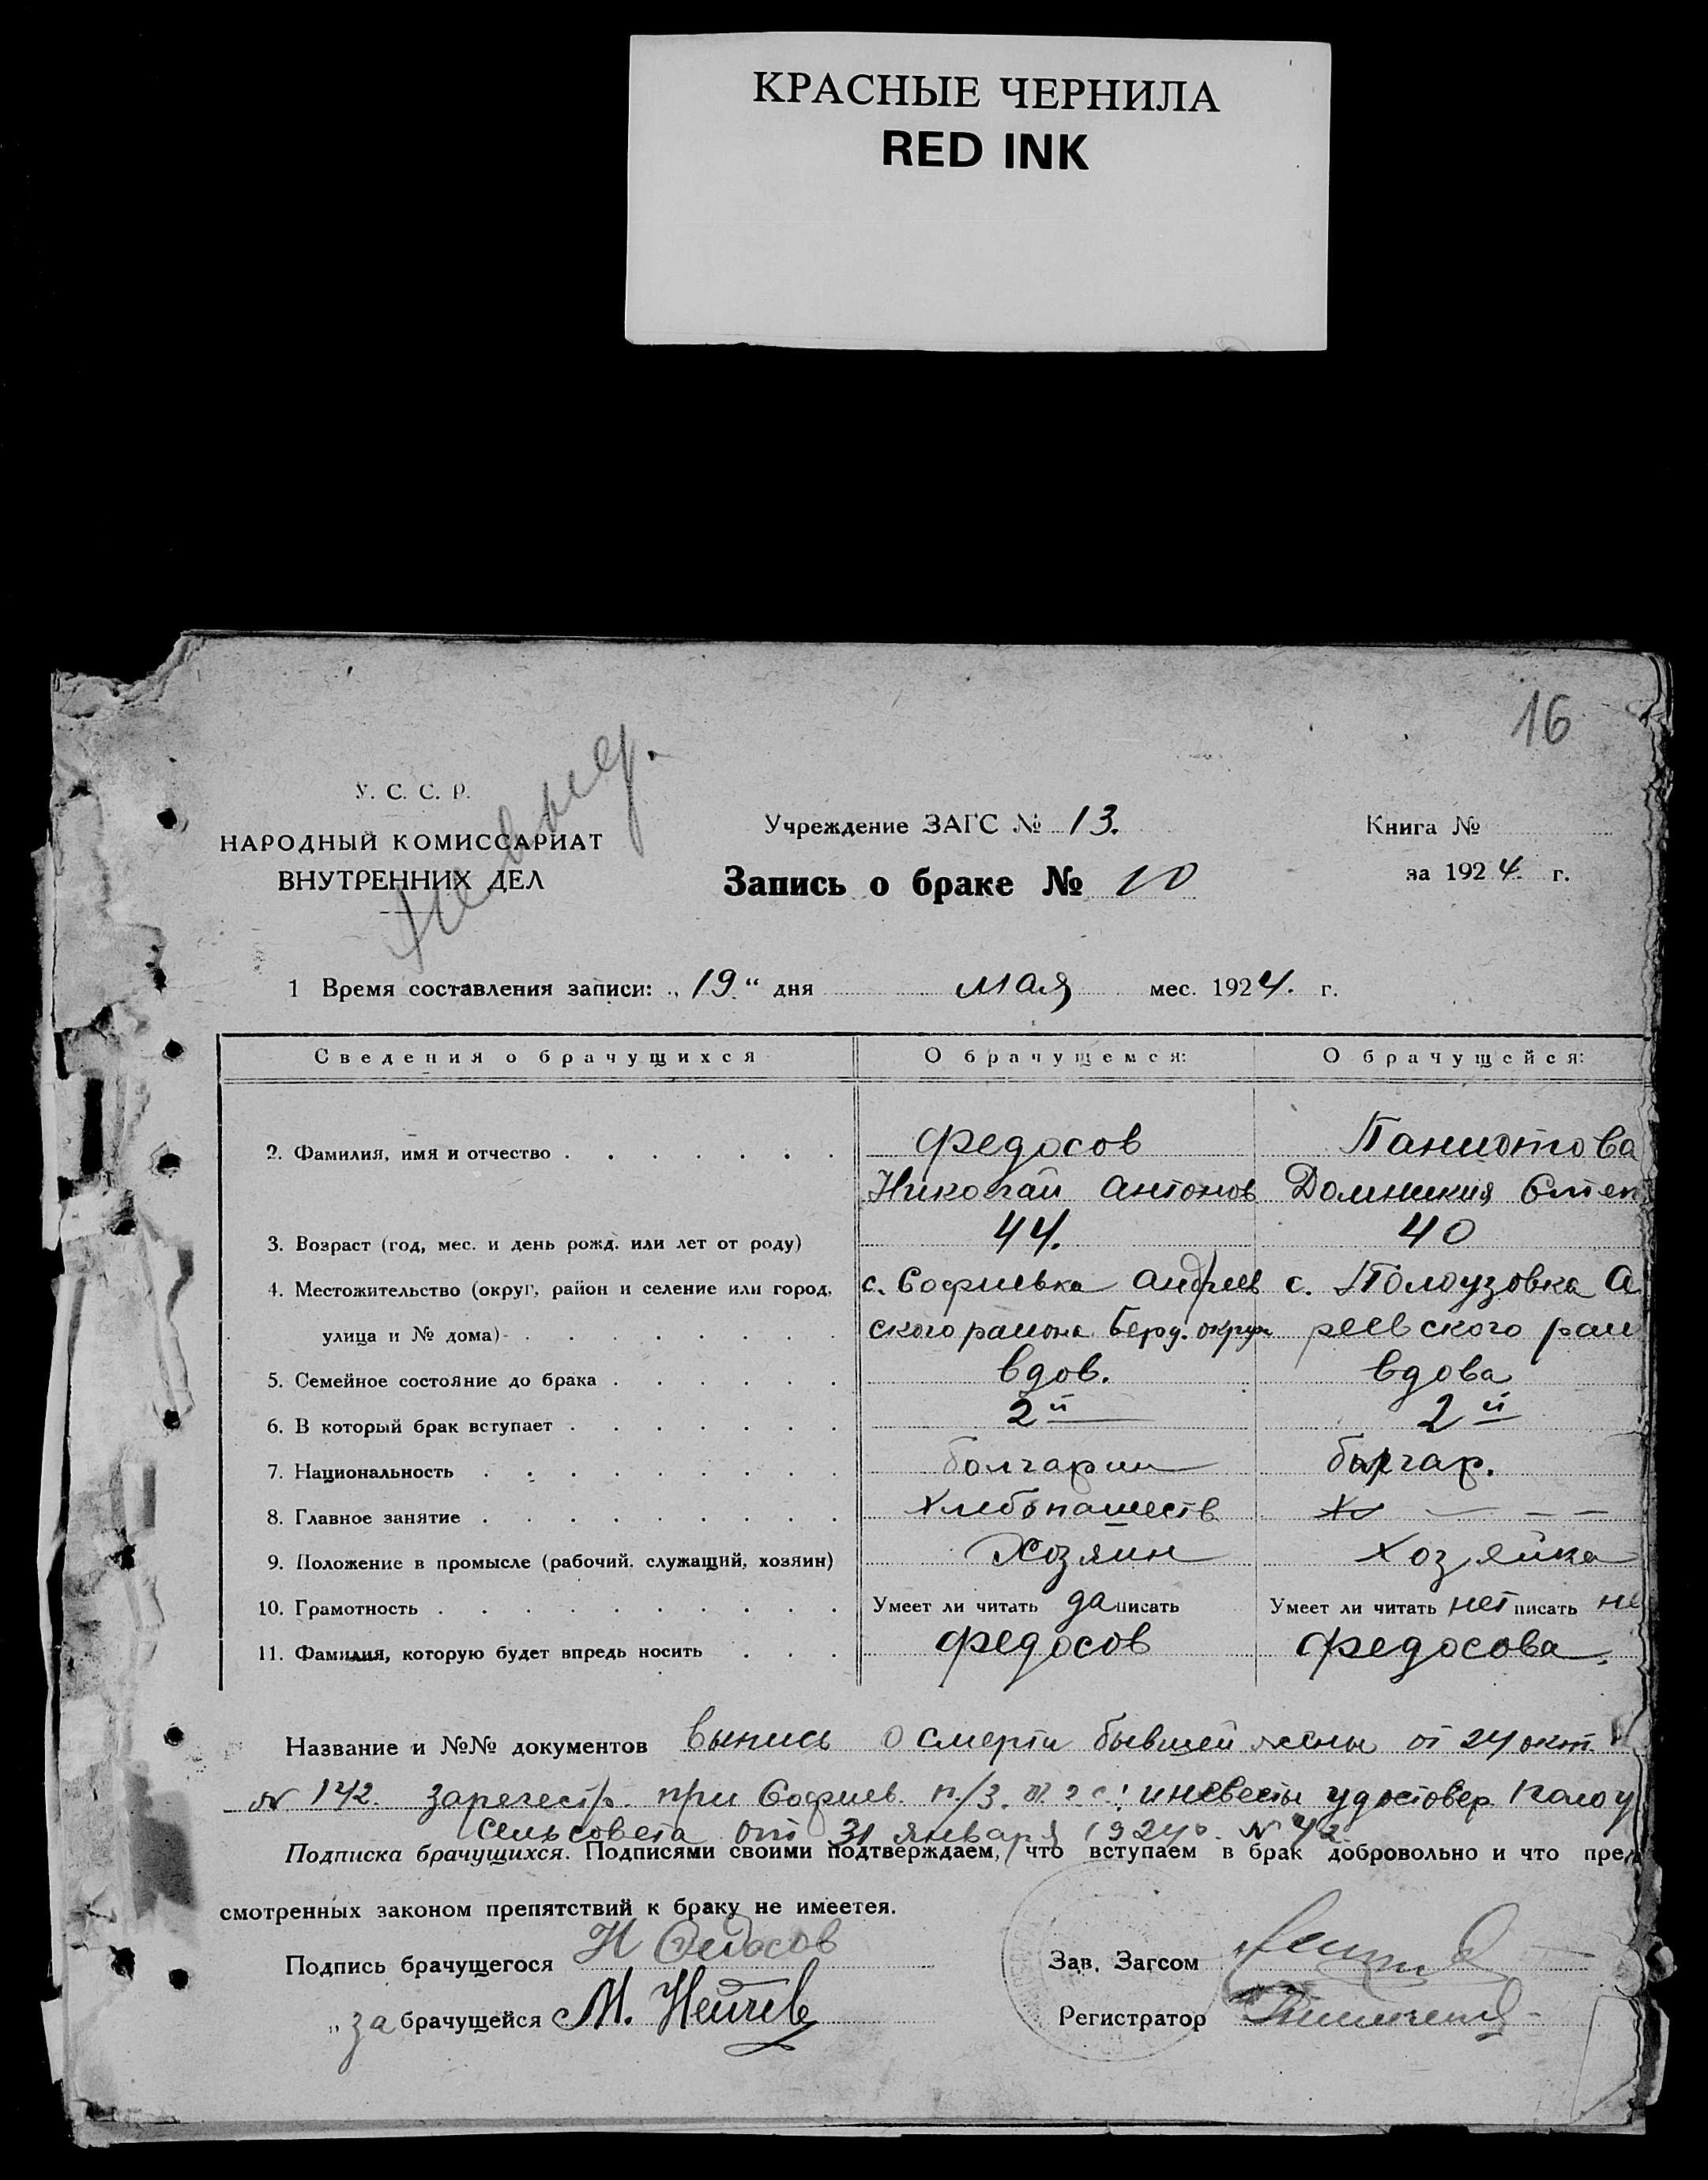 КРАСНЫЕ ЧЕРНИЛА
RED INK
16
У. С. С. Р.
НАРОДНЫЙ КОМИССАРИАТ
ВНУТРЕННИХ ДЕЛ
Учреждение ЗАГС № 13.
Запись о браке № 10
Книга №
за 1924. г.
1 Время составления записи: „19“ дня мая мес. 1924. г.
Сведения о брачущихся О брачущемся: О брачущейся:
2. Фамилия, имя и отчество Федосов Паниотова
Николай Антонов Домникия Степ
3. Возраст (год, мес. и день рожд. или лет от роду) 44. 40
4. Местожительство (округ, район и селение или город, с. Софиевка Андреев с. Полоузовка А
улица и № дома) ского района Берд. округа реевского рай
5. Семейное состояние до брака вдов. вдова
6. В который брак вступает 2й 2й
7. Национальность болгарин болгар.
8. Главное занятие Хлебопашеств
9. Положение в промысле (рабочий, служащий, хозяин) Хозяин Хозяйка
10. Грамотность Умеет ли читать да писать Умеет ли читать нет писать не
11. Фамилия, которую будет впредь носить Федосов Федосова.
Название и №№ документов выпись о смерти бывшей жены от 24 окт.
№ 142. зарегестр. при Софиев. п/з. а. г. с.; и невесты удостовер. Полоу
сельсовета от 31 января 1924 г. № 42.
Подписка брачущихся. Подписями своими подтверждаем, что вступаем в брак добровольно и что пред
смотренных законом препятствий к браку не имеетея.
Подпись брачущегося Н Федосов
Зав. Загсом
„ за брачущейся М. Нейчев
Регистратор